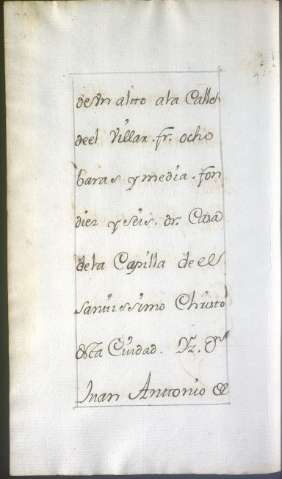 de Un alto ala Calle
de el Villar. fr. ocho
baras y media. fon
diez y seis. dr. Casa
dela Capilla de el
santissimo Christo
desta Ciudad. Yz. Dn
Juan Antonio de